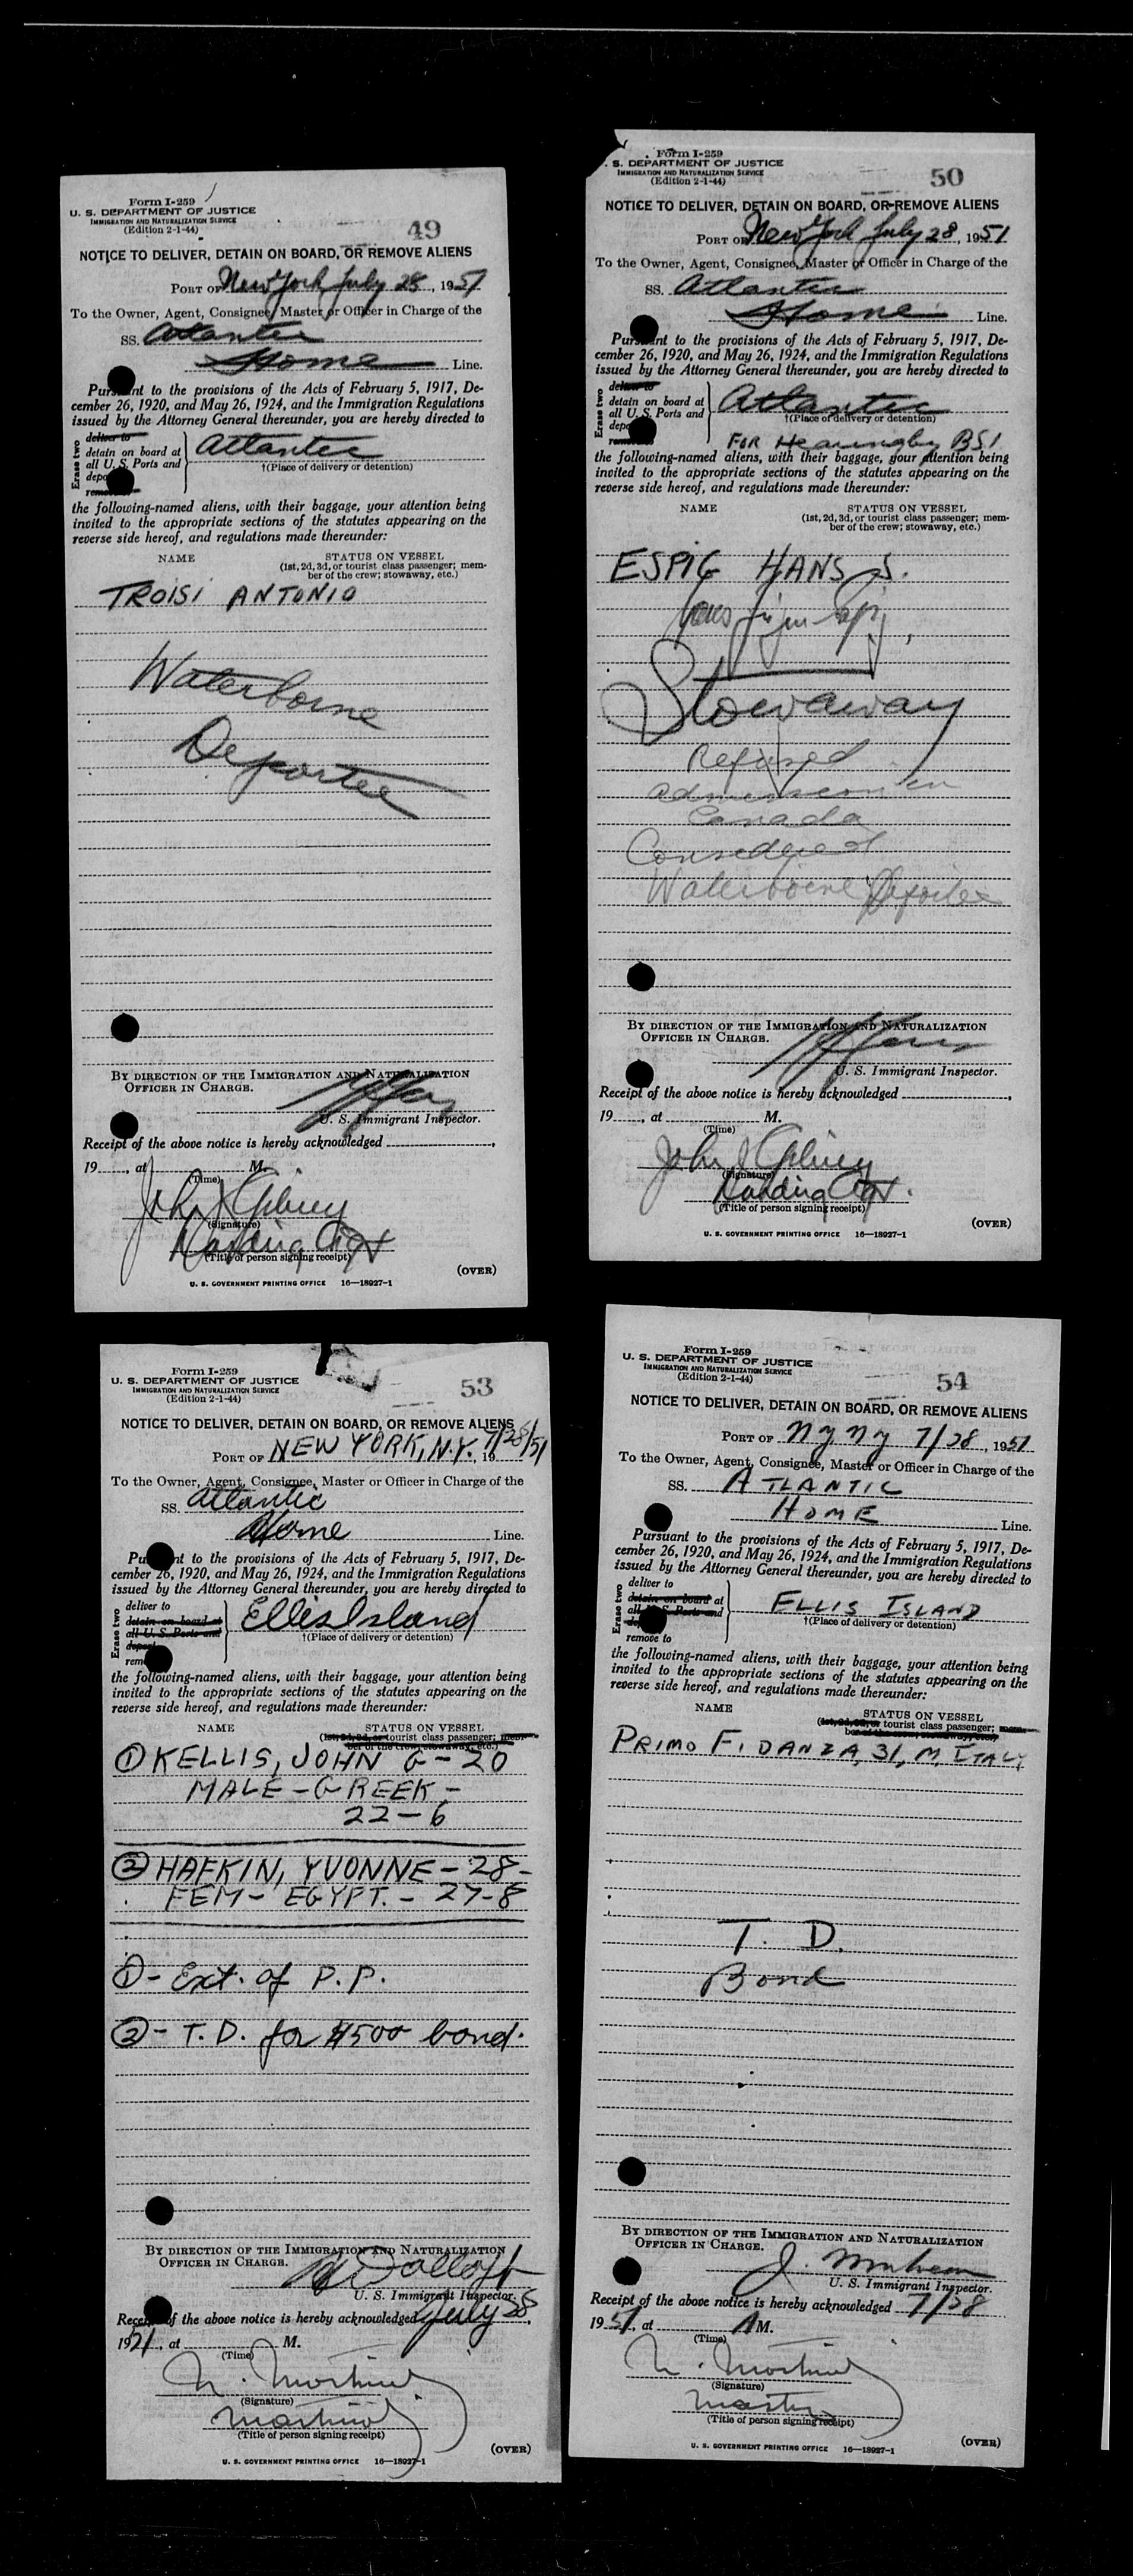 Form I-259
U. S. DEPARTMENT OF JUSTICE
IMMIGRATION AND NATURALIZATION SERVICE
(Edition 2-1-44)
49
NOTICE TO DELIVER, DETAIN ON BOARD, OR REMOVE ALIENS
PORT OF New York July 28, 1951
To the Owner, Agent, Consignee, Master or Officer in Charge of the
SS. Atlantic
Home Line.
Pursuant to the provisions of the Acts of February 5, 1917, De-
cember 26, 1920, and May 26, 1924, and the Immigration Regulations
issued by the Attorney General thereunder, you are hereby directed to
Erase two
deliver to
detain on board at
all U. S. Ports and
depo
remove to
Atlantic
†(Place of delivery or detention)
the following-named aliens, with their baggage, your attention being
invited to the appropriate sections of the statutes appearing on the
reverse side hereof, and regulations made thereunder:
NAME STATUS ON VESSEL
(1st, 2d, 3d, or tourist class passenger; mem-
ber of the crew; stowaway, etc.)
TROISI ANTONIO
Waterborne
Deportee
BY DIRECTION OF THE IMMIGRATION AND NATURALIZATION
OFFICER IN CHARGE.
U. S. Immigrant Inspector.
Receipt of the above notice is hereby acknowledged
19 , at M.
(Time)
John J
(Signature)
Landing Agt
(Title of person signing receipt)
(OVER)
U. S. GOVERNMENT PRINTING OFFICE 16—18927-1
Form I-259
. S. DEPARTMENT OF JUSTICE
IMMIGRATION AND NATURALIZATION SERVICE
(Edition 2-1-44)
50
NOTICE TO DELIVER, DETAIN ON BOARD, OR REMOVE ALIENS
PORT OF New York July 28, 1951
To the Owner, Agent, Consignee, Master or Officer in Charge of the
SS. Atlantic
Home Line.
Pursuant to the provisions of the Acts of February 5, 1917, De-
cember 26, 1920, and May 26, 1924, and the Immigration Regulations
issued by the Attorney General thereunder, you are hereby directed to
Erase two
deliver to
detain on board at
all U. S. Ports and
depo
remove to
Atlantic
†(Place of delivery or detention)
FOR Hearing by BSI
the following-named aliens, with their baggage, your attention being
invited to the appropriate sections of the statutes appearing on the
reverse side hereof, and regulations made thereunder:
NAME STATUS ON VESSEL
(1st, 2d, 3d, or tourist class passenger; mem-
ber of the crew; stowaway, etc.)
ESPIG HANS J.
Stowaway
Refused
admission in
Canada
Considered
Waterborne Deportee
BY DIRECTION OF THE IMMIGRATION AND NATURALIZATION
OFFICER IN CHARGE.
U. S. Immigrant Inspector.
Receipt of the above notice is hereby acknowledged ,
19 , at M.
(Time)
John J
(Signature)
Landing Agt.
(Title of person signing receipt)
(OVER)
U. S. GOVERNMENT PRINTING OFFICE 16—18927-1
Form I-259
U. S. DEPARTMENT OF JUSTICE
IMMIGRATION AND NATURALIZATION SERVICE
(Edition 2-1-44)
53
NOTICE TO DELIVER, DETAIN ON BOARD, OR REMOVE ALIENS
PORT OF NEW YORK, N.Y. 7/28/51 19
To the Owner, Agent, Consignee, Master or Officer in Charge of the
SS. Atlantic
Home Line.
Pursuant to the provisions of the Acts of February 5, 1917, De-
cember 26, 1920, and May 26, 1924, and the Immigration Regulations
issued by the Attorney General thereunder, you are hereby directed to
Erase two
deliver to
detain on board at
all U. S. Ports and
deport
rem
Ellis Island
†(Place of delivery or detention)
the following-named aliens, with their baggage, your attention being
invited to the appropriate sections of the statutes appearing on the
reverse side hereof, and regulations made thereunder:
NAME STATUS ON VESSEL
(1st, 2d, 3d, or tourist class passenger; mem-
ber of the crew; stowaway, etc.)
① KELLIS, JOHN G - 20
MALE - GREEK -
22-6
② HAFKIN, YVONNE - 28 -
FEM - EGYPT. - 27-8
① - Ext. of P.P.
② - T.D. for $500 bond.
BY DIRECTION OF THE IMMIGRATION AND NATURALIZATION
OFFICER IN CHARGE.
U. S. Immigrant Inspector.
Receipt of the above notice is hereby acknowledged July 28,
1951, at M.
(Time)
(Signature)
(Title of person signing receipt)
(OVER)
U. S. GOVERNMENT PRINTING OFFICE 16—18927-1
Form I-259
U. S. DEPARTMENT OF JUSTICE
IMMIGRATION AND NATURALIZATION SERVICE
(Edition 2-1-44)
54
NOTICE TO DELIVER, DETAIN ON BOARD, OR REMOVE ALIENS
PORT OF NY NY 7/28, 1951
To the Owner, Agent, Consignee, Master or Officer in Charge of the
SS. ATLANTIC
HOME Line.
Pursuant to the provisions of the Acts of February 5, 1917, De-
cember 26, 1920, and May 26, 1924, and the Immigration Regulations
issued by the Attorney General thereunder, you are hereby directed to
Erase two
deliver to
detain on board at
all U. S. Ports and
de
remove to
ELLIS ISLAND
†(Place of delivery or detention)
the following-named aliens, with their baggage, your attention being
invited to the appropriate sections of the statutes appearing on the
reverse side hereof, and regulations made thereunder:
NAME STATUS ON VESSEL
(1st, 2d, 3d, or tourist class passenger; mem-
ber of the crew; stowaway, etc.)
PRIMO FIDANZA, 31, M, ITALY
T. D.
Bond
BY DIRECTION OF THE IMMIGRATION AND NATURALIZATION
OFFICER IN CHARGE.
J.
U. S. Immigrant Inspector.
Receipt of the above notice is hereby acknowledged 7/28
1951, at AM.
(Time)
(Signature)
(Title of person signing receipt)
(OVER)
U. S. GOVERNMENT PRINTING OFFICE 16—18927-1